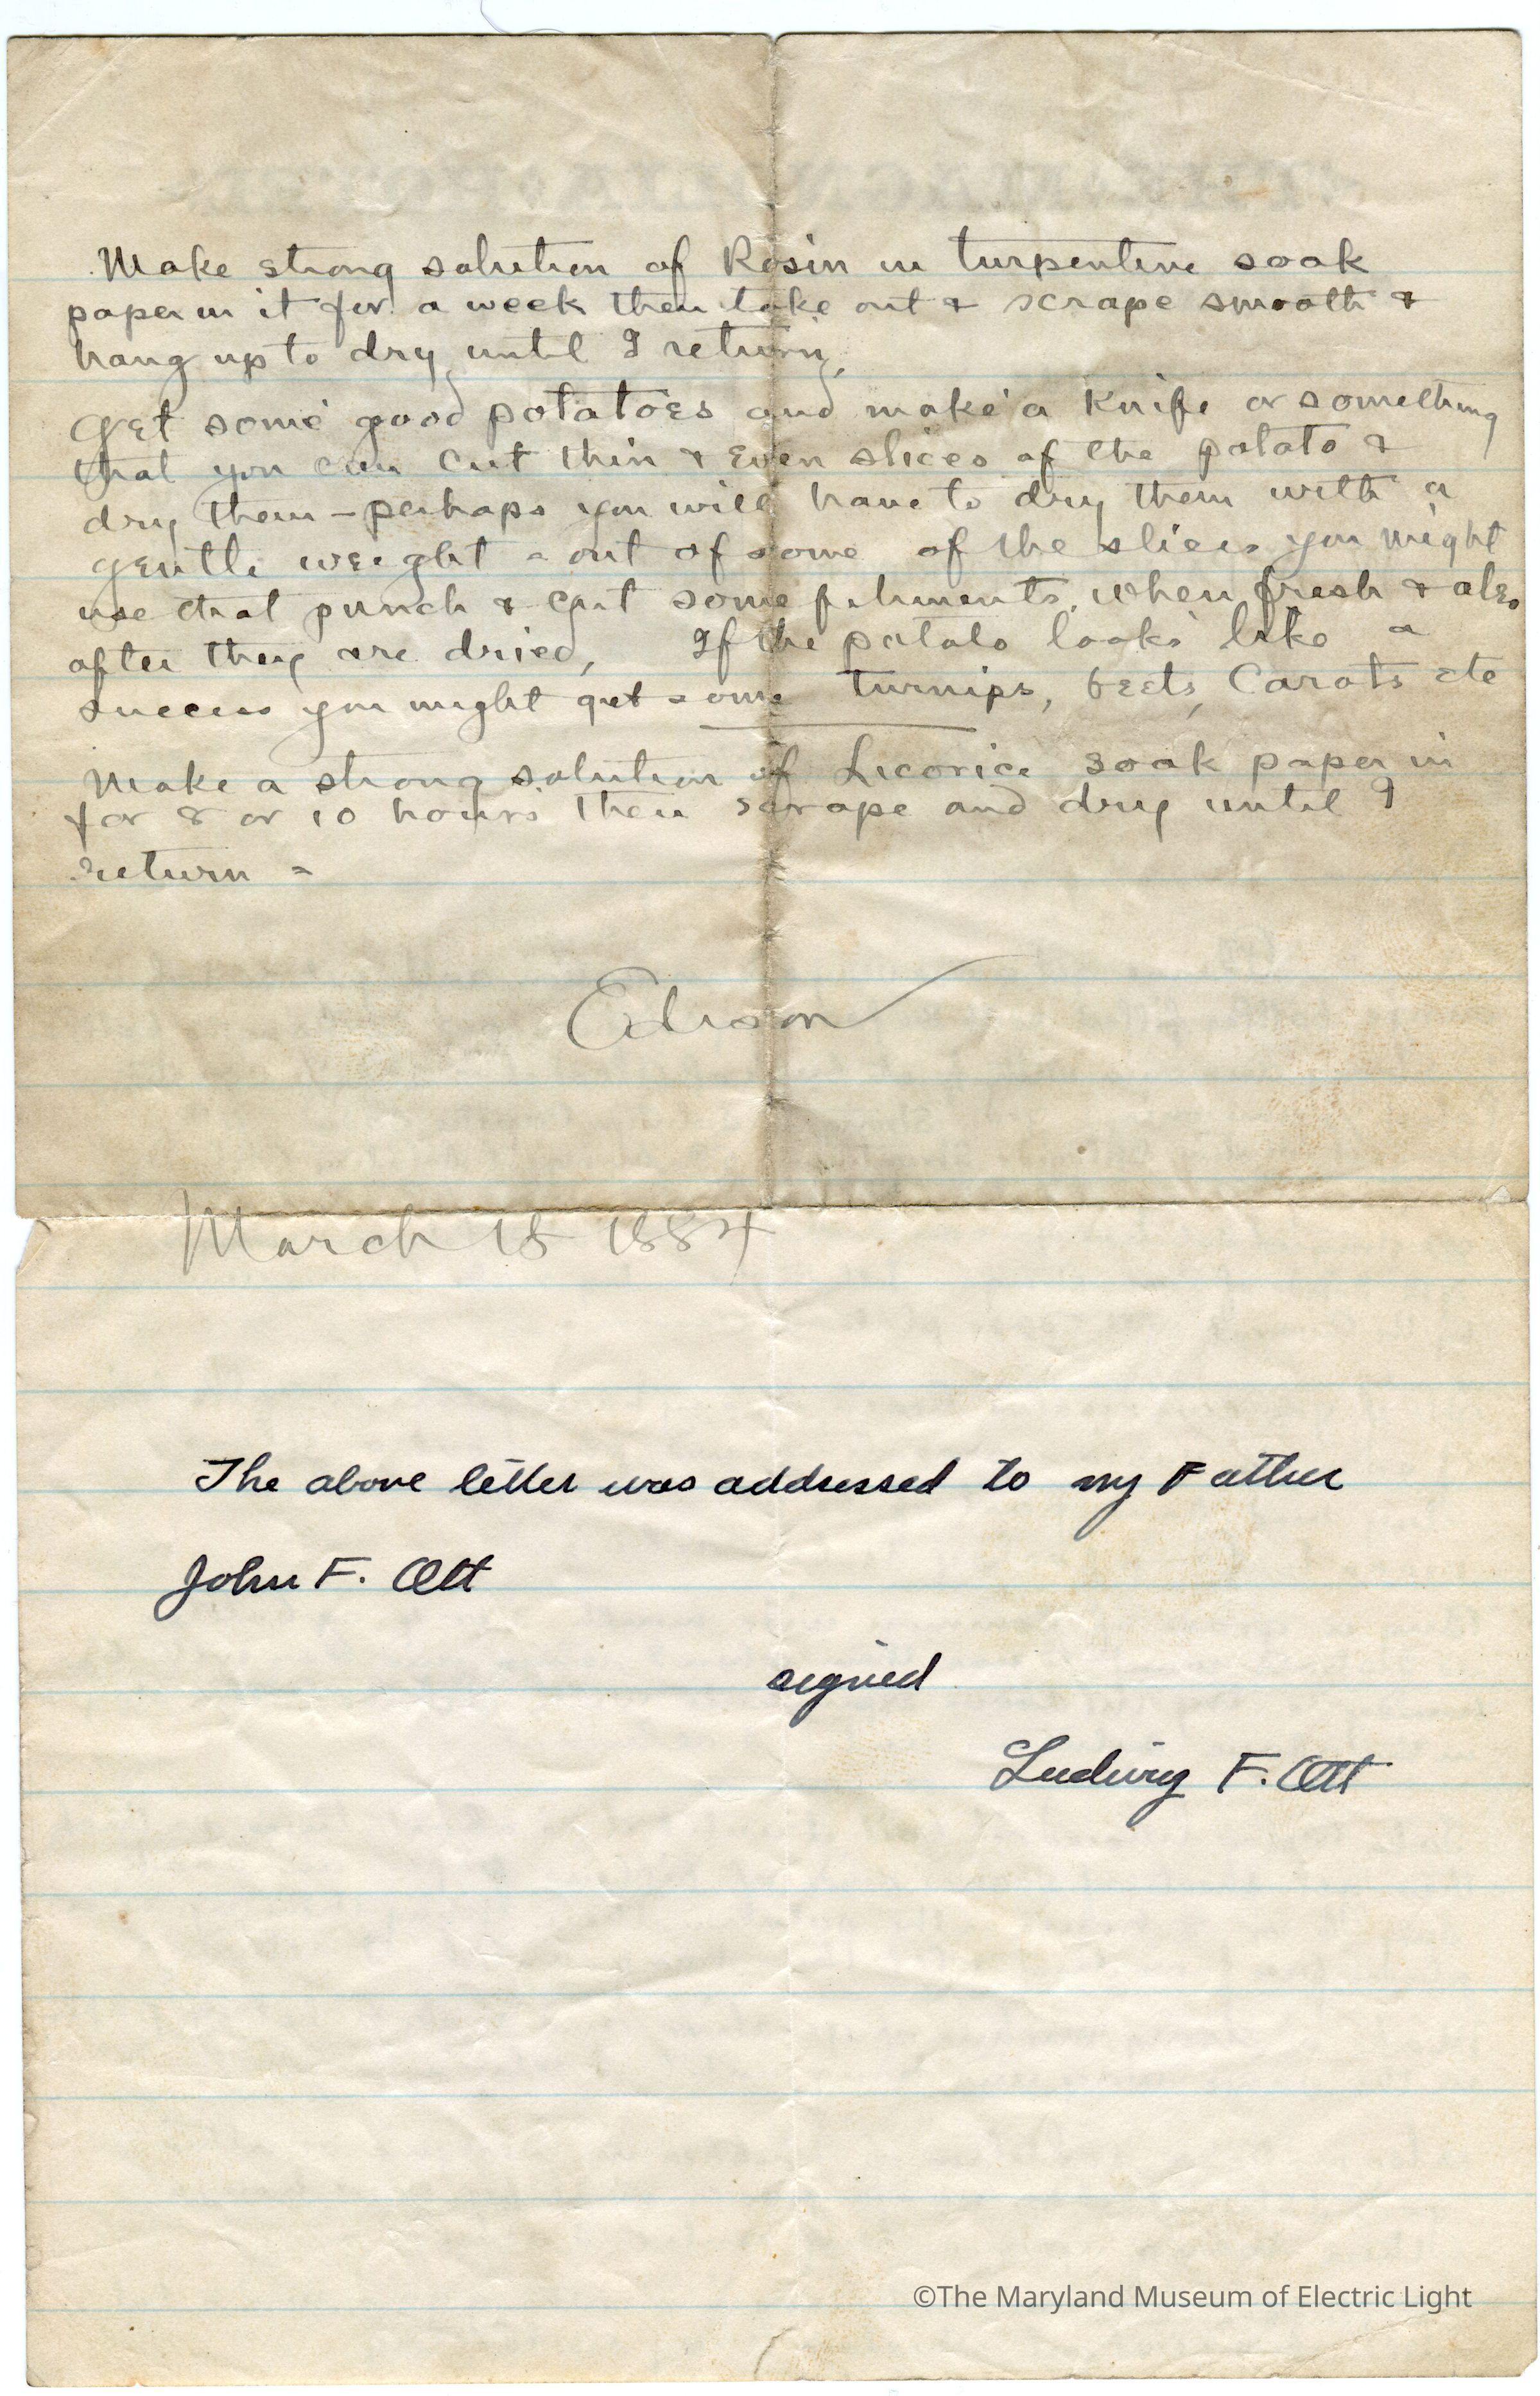 Make strong solution of Rosin in turpentine soak
paper in it for a week then take out & scrape smooth &
hang up to dry until I return,
Get some good potatoes and make a Knife or something
that you can cut thin & Even slices of the potato &
dry them – perhaps you will have to dry them with a
gentle weight – out of some of the slices you might
use that punch & cut some filiments, when fresh & also
after they are dried, If the potato looks like a
success you might get some turnips, beets, Carots etc
Make a strong solution of Licorice soak paper in
for 8 or 10 hours then scrape and dry until I
return =
Edison
March 18 1884
The above letter was addressed to my Father
John F. Ott
signed
Ludwig F. Ott
©The Maryland Museum of Electric Light